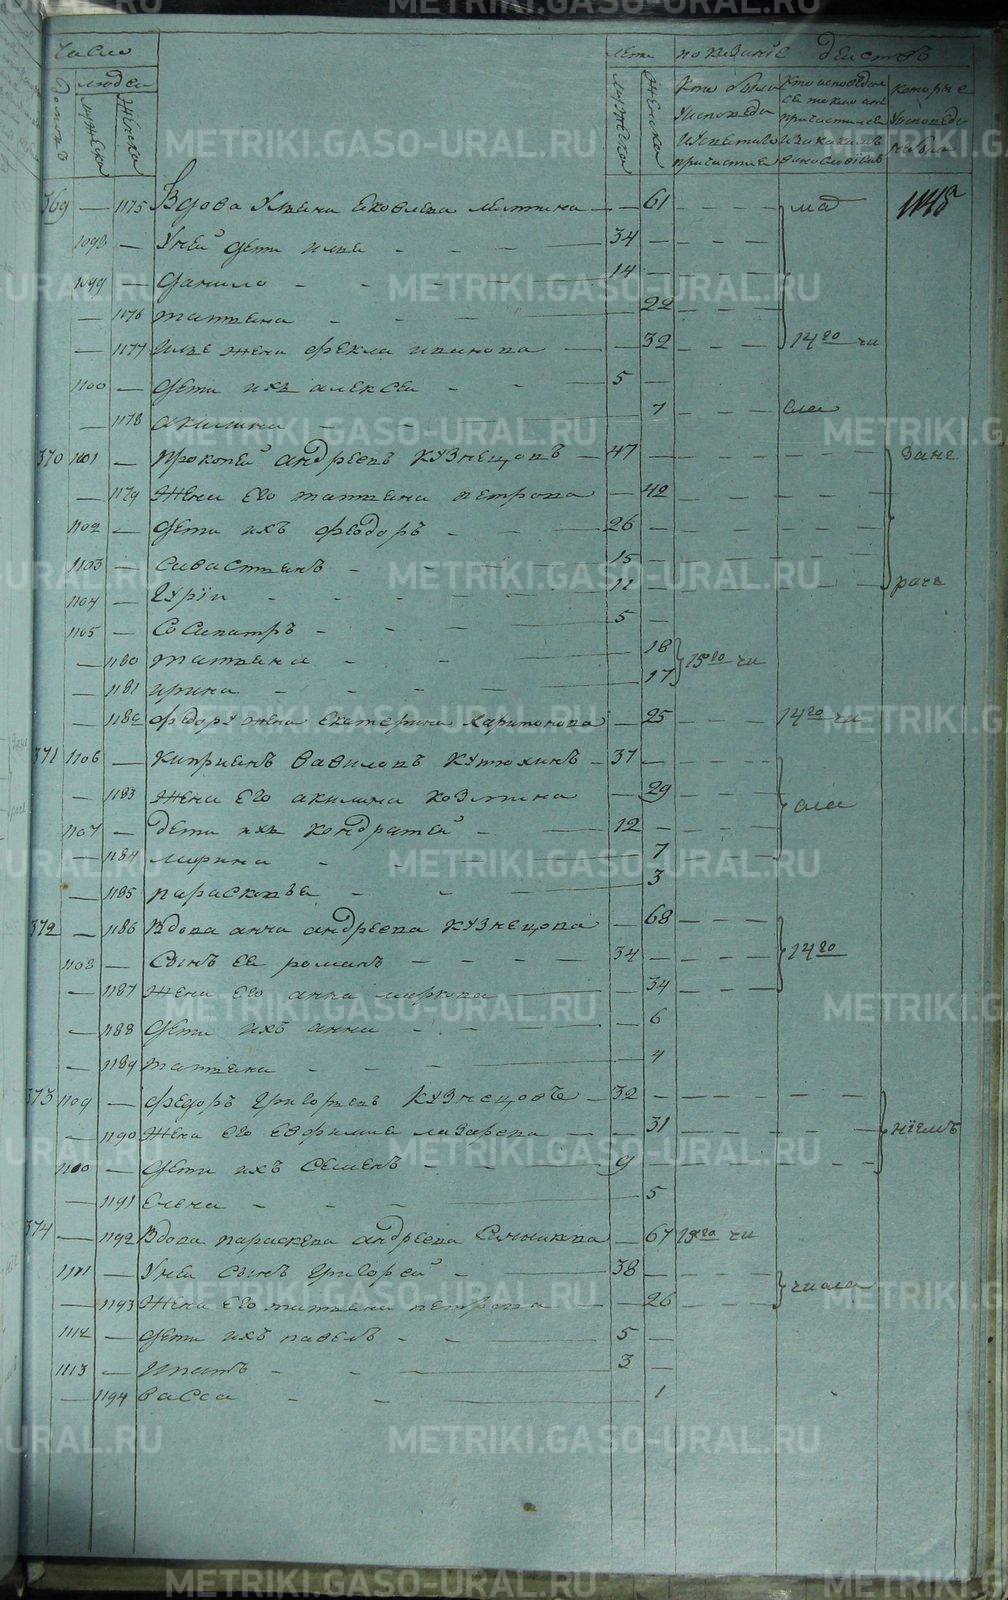 число
лета показание действъ
Домовъ
людеи
мужеска
женска
мужеска
женска
Кто были
у исповеди
и у святаго
причастия
Кто исповедыва
которые
у исповеди
не были
369 — 1175 Вдова Ульяна Яковлева — 61
1098 — У неи дети илья — 34
1099 — данило — 14
— 1176 татьяна — 22
— 1177 илье жена фекла иванова — 32 14го чи
1100 — дети ихъ алексеи — 5
— 1178 акилина — 7
370 1101 — прокопеи андреевъ кузнецовъ — 47 — зане
— 1179 жена его татьяна петрова — 42
1102 — дети ихъ федоръ — 26
1103 — савастьянъ — 15
1104 — гурiи — 11
1105 — сосипатръ — 5
— 1180 татьяна — 18 15го чи
— 1181 ирина — 17
— 1182 федору жена екатерина харитонова — 25 14го чи
371 1106 — киприянъ вавиловъ кутюхинъ — 37
— 1183 жена его акилина козмина — 29
1107 — дети ихъ кондратеи — 12
— 1184 марина — 7
— 1185 параскевья — 3
372 — 1186 вдова анна андреева кузнецова — 68
1108 — сынъ ея романъ — 34 14го
— 1187 жена его анна маркова — 34
— 1188 дети ихъ анна — 6
— 1189 татьяна — 4
373 1109 — федоръ григорьевъ кузнецовъ — 32
— 1190 жена его евфимия лазарева — 31 нiемъ
1110 — дети ихъ семенъ — 9
— 1191 елена — 5
374 — 1192 вдова параскева андреева — 67 15го чи
1111 — У неи сынъ григореи — 38
— 1193 жена его татьяна петрова — 26
1112 — дети ихъ павелъ — 5
1113 — ипатъ — 3
— 1194 васса — 1
METRIKI.GASO-URAL.RU